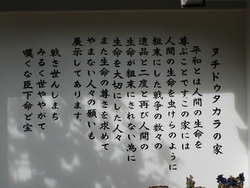 ヌチドゥタカラの家
平和とは人間の生命を
尊ぶことです この家には
人間の生命を虫けらのように
粗末にした戦争の数々の
遺品と二度と再び人間の
生命が粗末にされない為に
生命を大切にした人々
また生命の尊さを求めて
やまない人々の願いも
展示してあります
戦さ世んしまち
みるく世ややがて
嘆くな臣下命ど宝